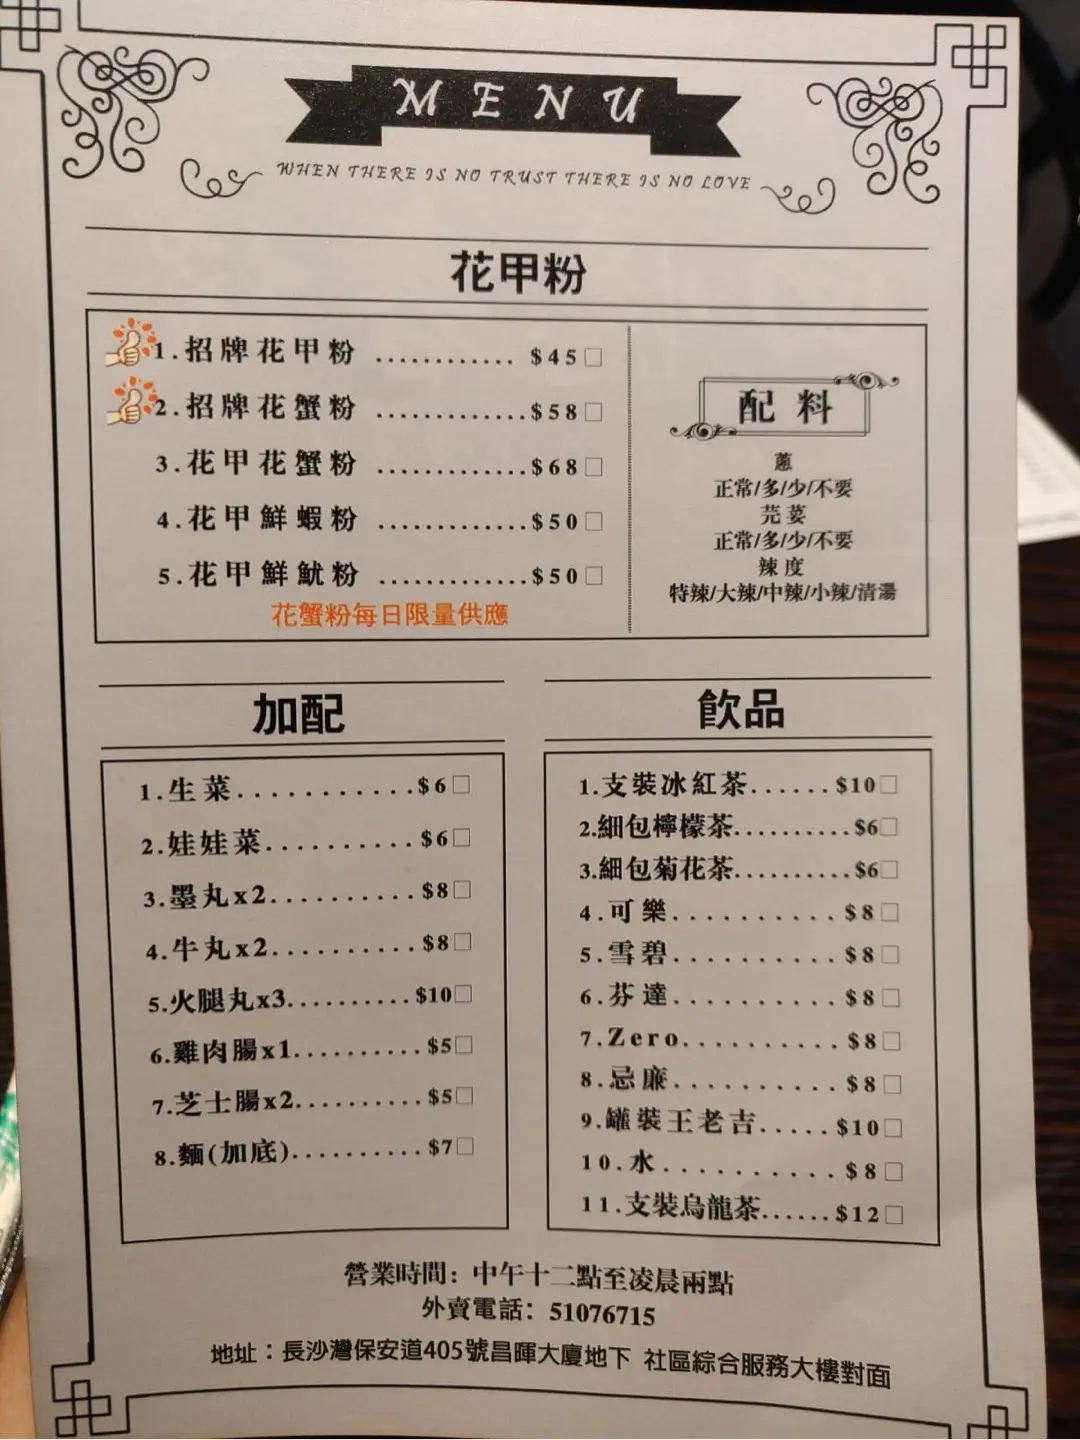 MENU
WHEN THERE IS NO TRUST THERE IS NO LOVE
花甲粉
1.招牌花甲粉 ............ $45□
2.招牌花蟹粉 .............$58□
3.花甲花蟹粉 .............$68□
4.花甲鮮蝦粉 .............$50□
5.花甲鮮魷粉 .............$50□
花蟹粉每日限量供應
配料
蔥
正常/多/少/不要
芫荽
正常/多/少/不要
辣度
特辣/大辣/中辣/小辣/清湯
加配
1.生菜............$6□
2.娃娃菜..........$6□
3.墨丸x2..........$8□
4.牛丸x2..........$8□
5.火腿丸x3..........$10□
6.雞肉腸x1..........$5□
7.芝士腸x2..........$5□
8.麵(加底)..........$7□
飲品
1.支裝冰紅茶......$10□
2.細包檸檬茶..........$6□
3.細包菊花茶..........$6□
4.可樂..........$8□
5.雪碧..........$8□
6.芬達..........$8□
7.Zero..........$8□
8.忌廉..........$8□
9.罐裝王老吉.....$10□
10.水..........$8□
11.支裝烏龍茶......$12□
營業時間：中午十二點至凌晨兩點
外賣電話：51076715
地址：長沙灣保安道405號昌暉大廈地下 社區綜合服務大樓對面